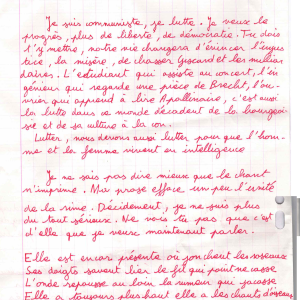 Je suis communiste, je lutte. Je veux le
progrès, plus de liberté, de démocratie. Tu dois
t'y mettre, notre vie changera d'évincer l'injus
tice, la misère, de chasser Giscard et les milliar
daires. L'étudiant qui assiste au concert, l'in
génieur qui regarde une pièce de Brecht, l'ou-
vrier qui apprend à lire Apollinaire, c'est aussi
la lutte dans ce monde décadent de la bourgeoi-
sie et de sa culture à la con.
Lutter, nous devons aussi lutter pour que l'hom-
me et la femme vivent en intelligence
Je ne sais pas dire mieux que le chant
n'imprime. Ma prose efface un peu l'unité
de la rime. Décidément, je ne suis plus
du tout sérieux. Ne vois-tu pas que c'est
d'elle que je veux maintenant parler.
Elle est encor présente où jonchent les roseaux
Ses doigts savent lier le fil qui point ne casse
L'onde repousse au loin la rumeur qui jacasse
Elle a toujours plus haut elle a les chants d'oiseaux